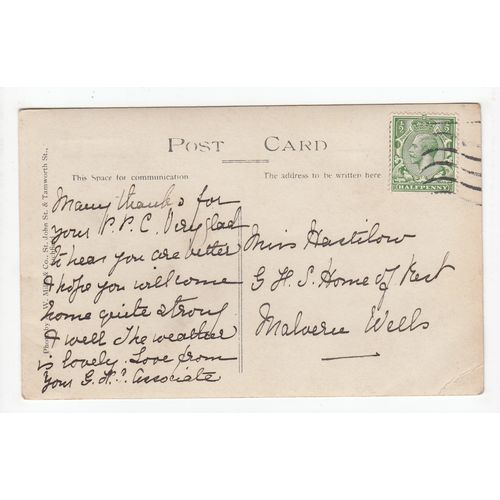 POST CARD
This Space for communication
The address to be written here
Many thanks for
your P.P.C. Very glad
to hear you are better
I hope you will come
home quite strong
& well The weather
is lovely. Love from
Your G. Associate
Miss Hastilow
G F S Home of Rest
Malvern Wells
& Co., St. John St. & Tamworth St.,
HALFPENNY